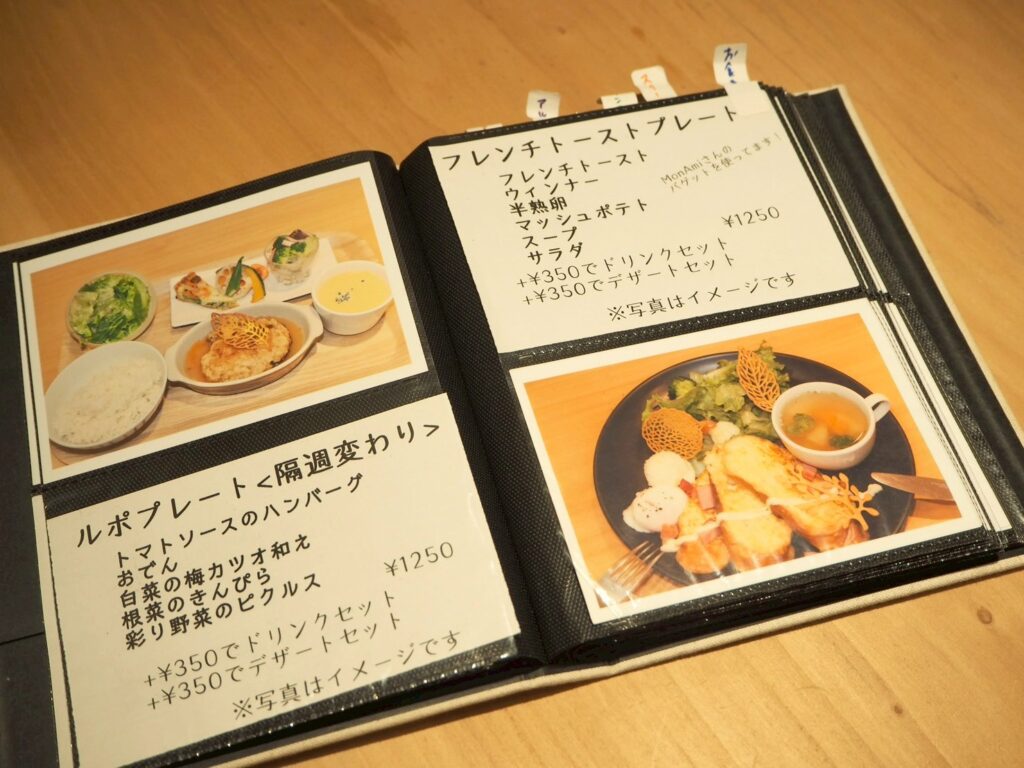 ルポプレート<隔週変わり>
トマトソースのハンバーグ
おでん
白菜の梅カツオ和え
根菜のきんぴら
彩り野菜のピクルス
¥1250
+¥350でドリンクセット
+¥350でデザートセット
※写真はイメージです
アル
フレンチトーストプレート
フレンチトースト
ウィンナー
半熟卵
マッシュポテト
スープ
サラダ
MonAmiさんの
バゲットを使ってます!
¥1250
+¥350でドリンクセット
+¥350でデザートセット
※写真はイメージです